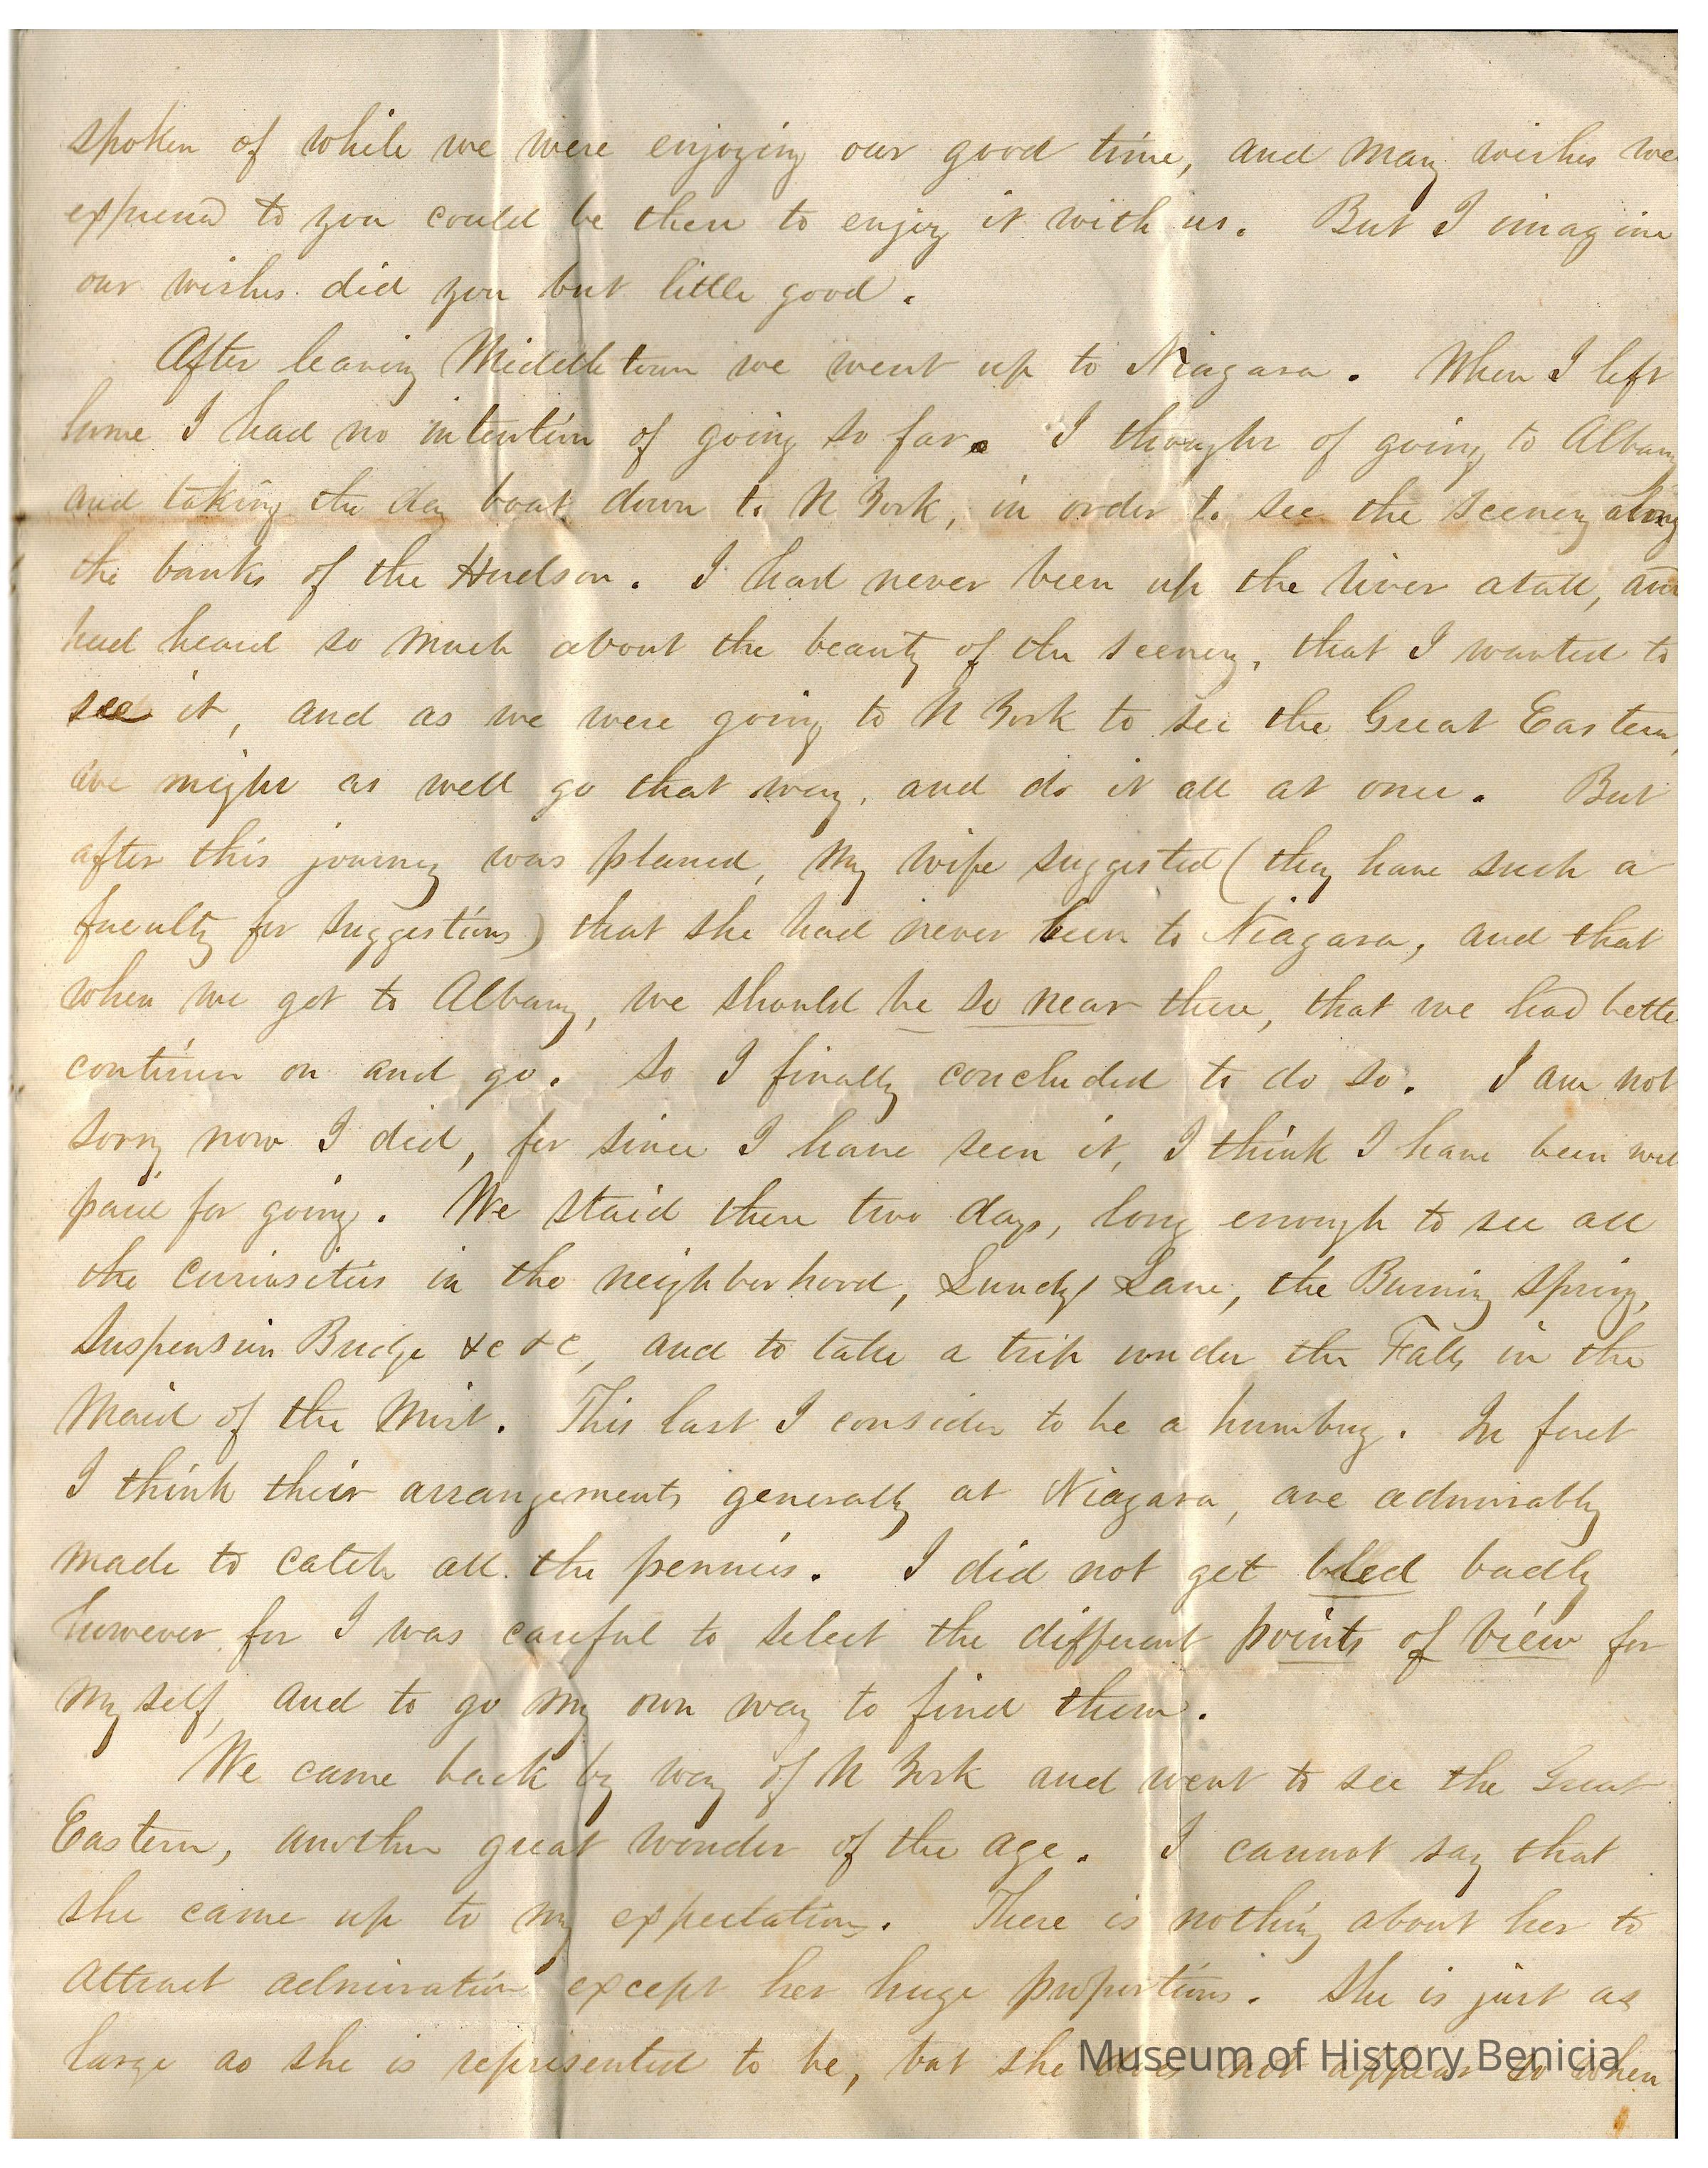 spoken of while we were enjoying our good time, and many wishes we
expressed to you could be there to enjoy it with us. But I imagine
our wishes did you but little good.
After leaving Middletown we went up to Niagara. When I left
home I had no intention of going so far. I thought of going to Albany
and taking the day boat down to N York, in order to see the scenery along
the banks of the Hudson. I had never been up the river atall, and
had heard so much about the beauty of the scenery, that I wanted to
see it, and as we were going to N York to see the Great Eastern,
we might as well go that way, and do it all at once. But
after this journey was planed, my wife suggested (they have such a
faculty for suggestions) that she had never been to Niagara, and that
when we got to Albany, we should be so near there, that we had bette
continue on and go. So I finally concluded to do so. I am not
sorry now I did, for since I have seen it, I think I have been well
paid for going. We staid there two days, long enough to see all
the curiosities in the neighborhood, Lundys Lane, the Burning Spring,
Suspension Bridge &c &c, and to take a trip under the Falls in the
Maid of the Mist. This last I consider to be a humbug. In fact
I think their arrangements generally at Niagara, are admirably
made to catch all the pennies. I did not get bled badly
however for I was careful to select the different points of view for
myself, and to go my own way to find them.
We came back by way of N York and went to see the Great
Eastern, another great wonder of the age. I cannot say that
she came up to my expectations. There is nothing about her to
attract admiration except her huge proportions. She is just as
large as she is represented to be, but she does not appear so when
Museum of History Benicia